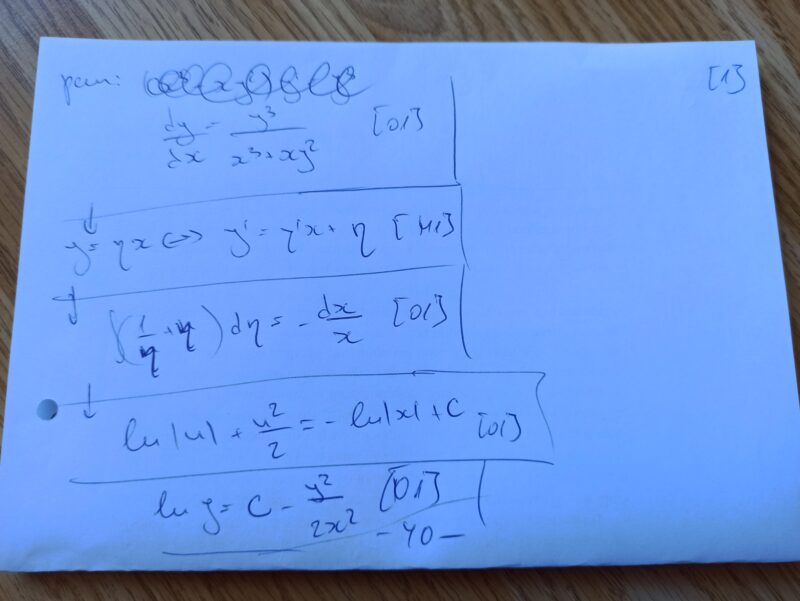 [1]
dy/dx = y³/(x³+xy²) [01]
↓
y = ηx ⇔ y' = η'x + η [M1]
↓
∫(1/η + η) dη = -dx/x [01]
↓
ln|u| + u²/2 = -ln|x| + C [01]
ln y = C - y²/2x² [01]
-40-